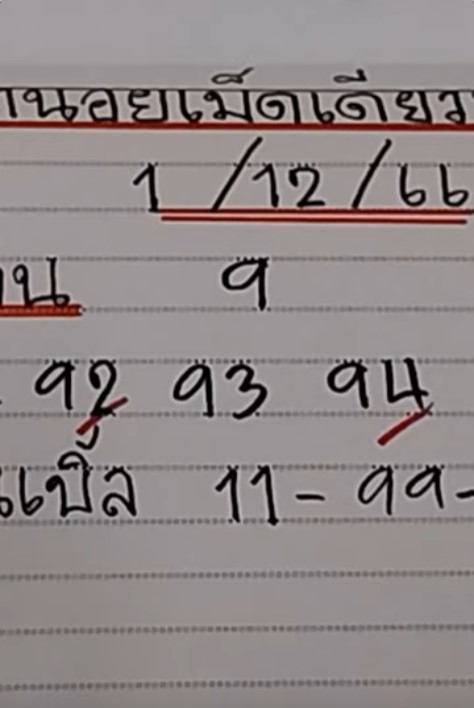 านอยเม็ดเดียว
1 /12 /66
าน 9
92 93 94
นเบิ้ล 11- 99-